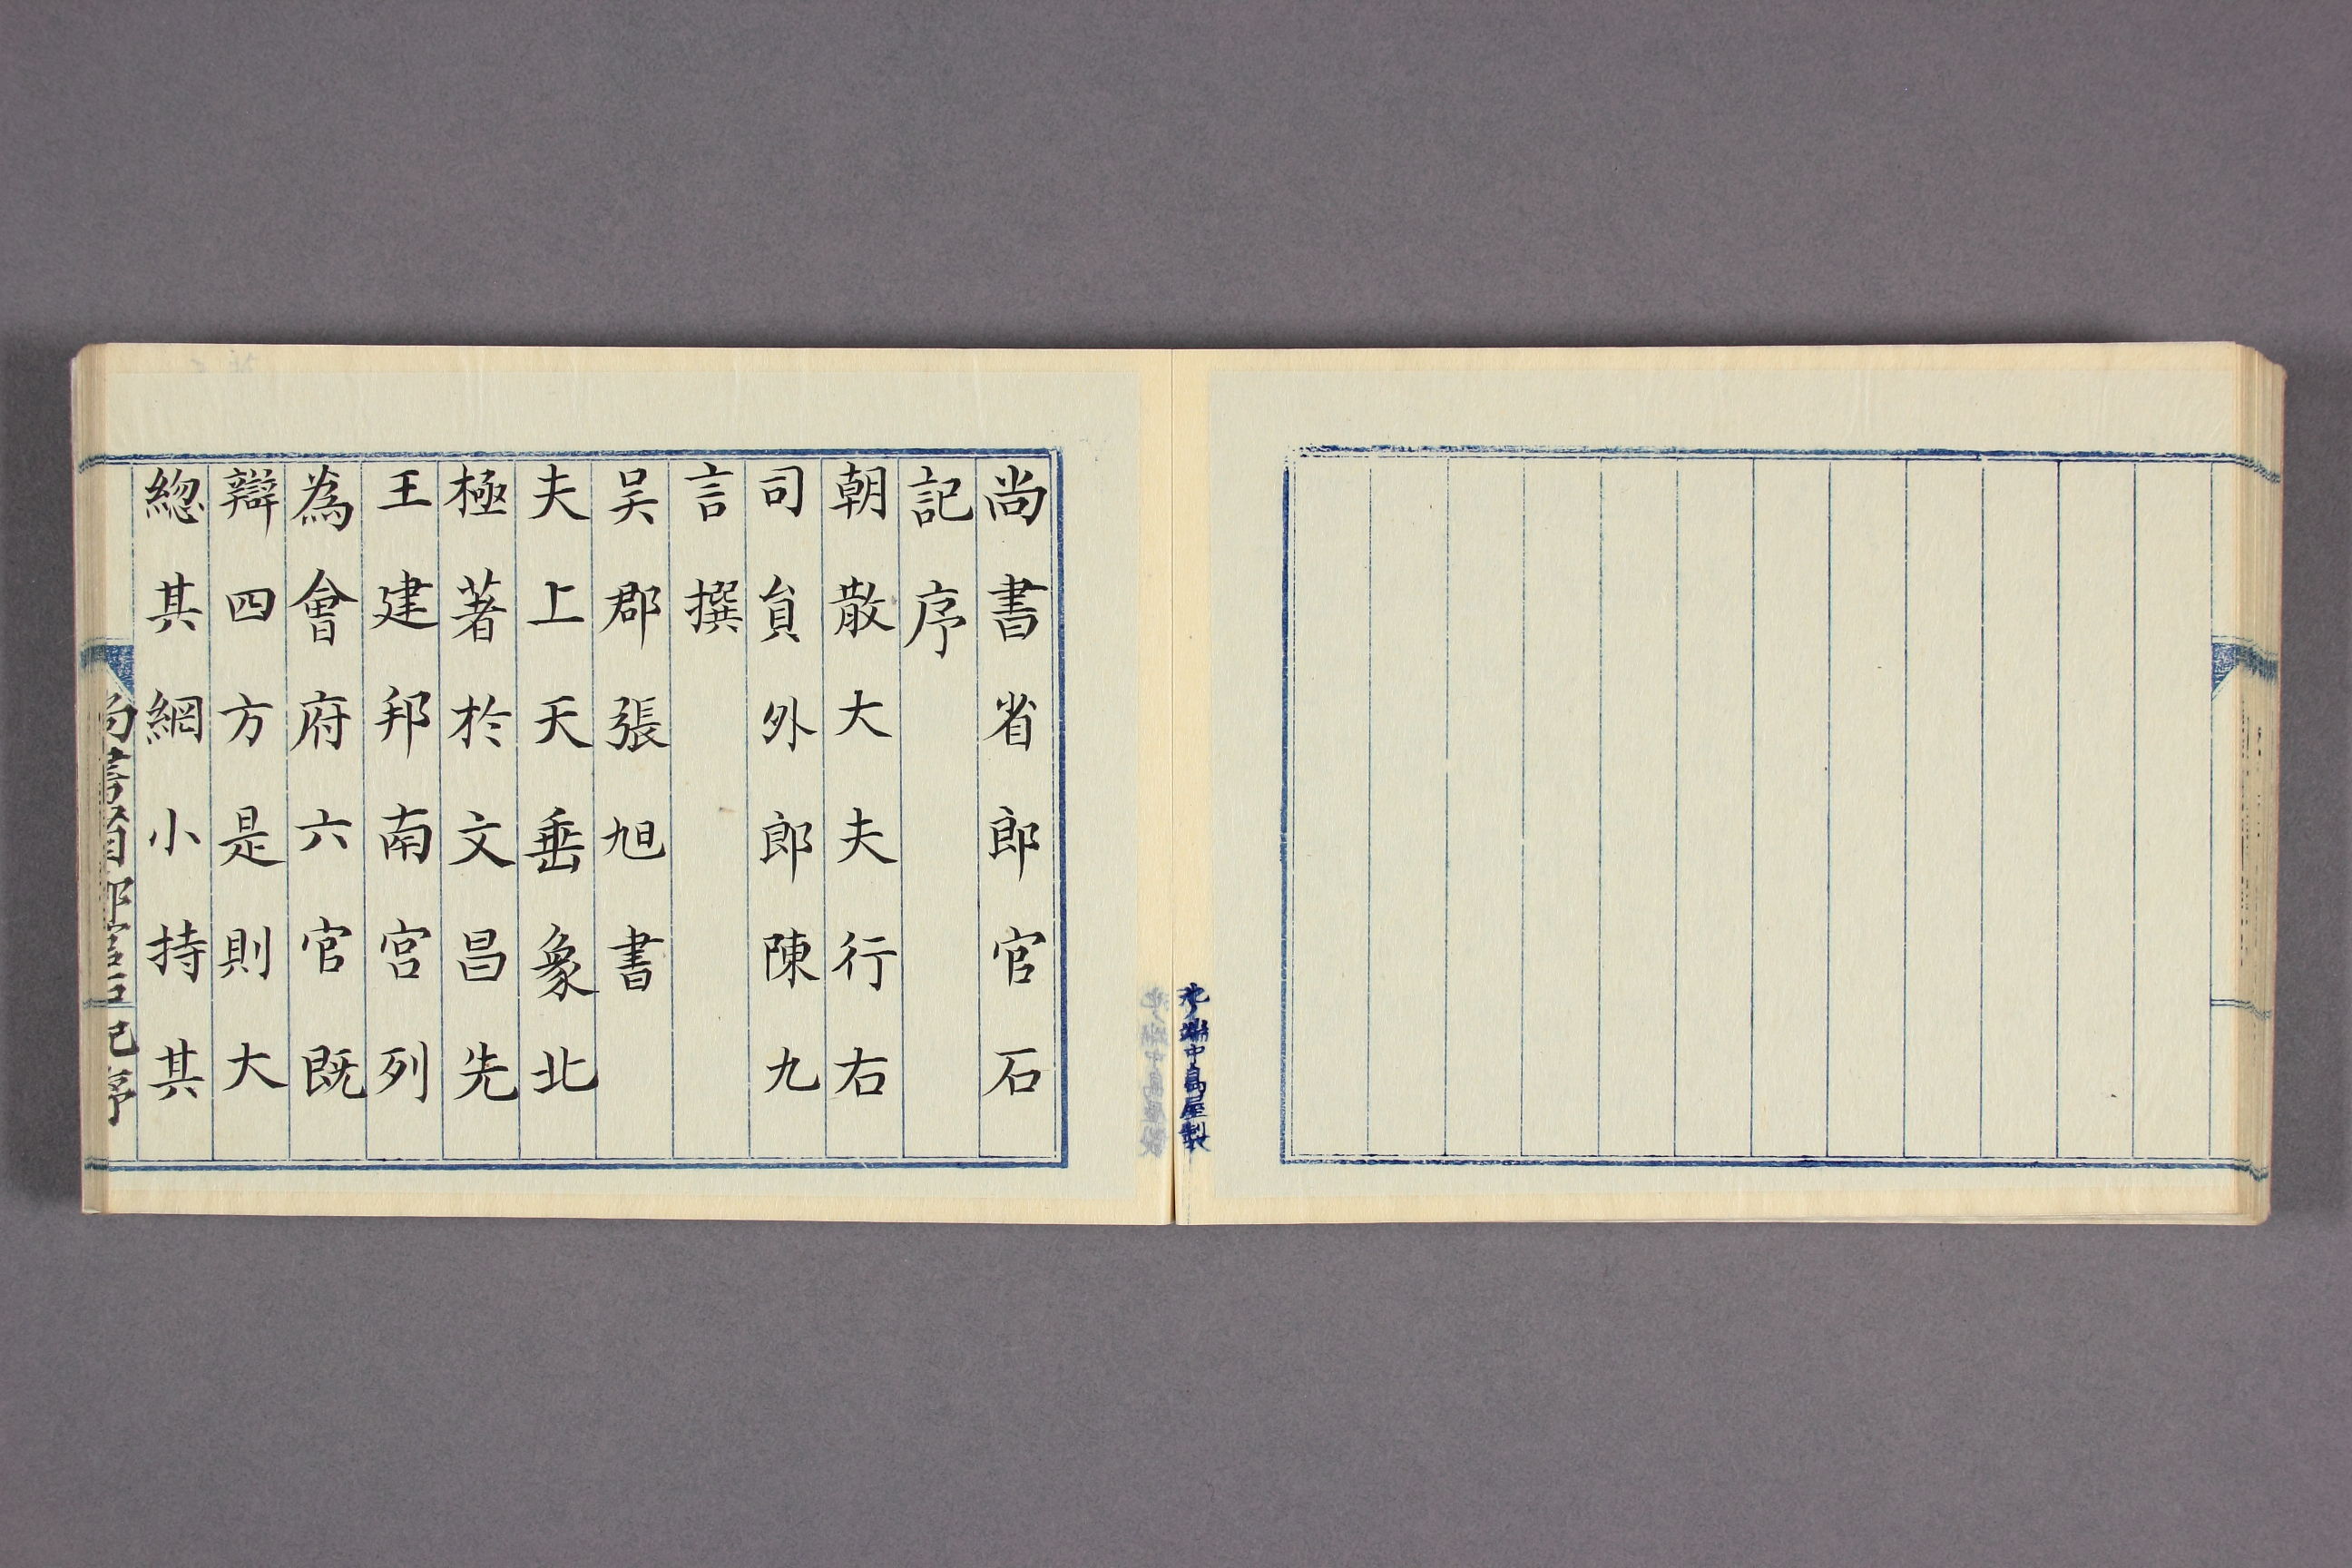 池ノ端中島屋製
尚書省郎官石
記序
朝散大夫行右
司負外郎陳九
言撰
吴郡張旭書
夫上天垂象北
極著於文昌先
王建邦南宫列
為會府六官既
辯四方是則大
緫其綱小持其
尚書省郎官石記序